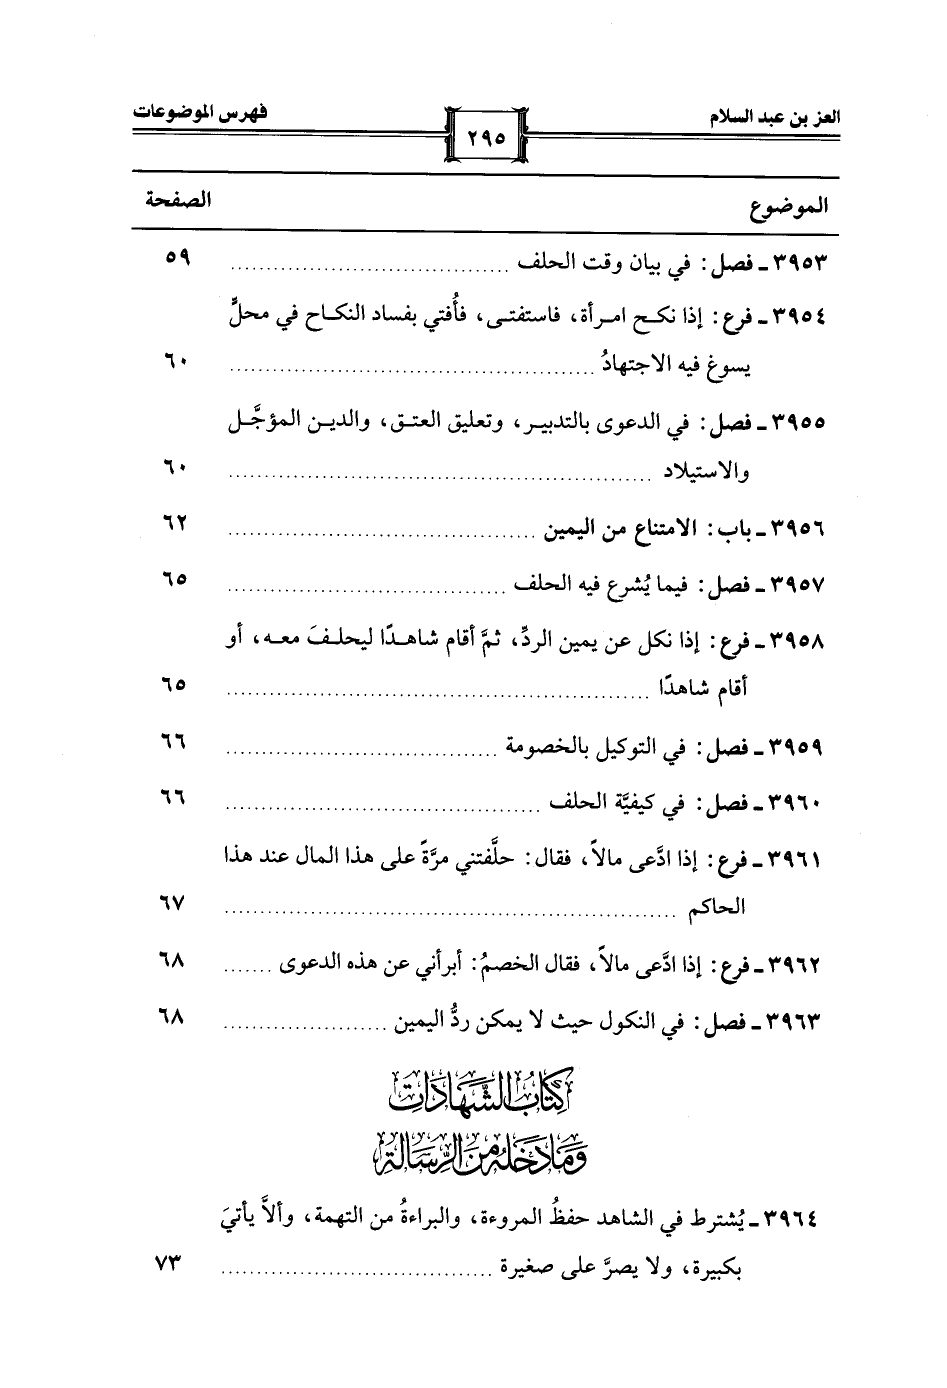 العز بن عبد السلام
٢٩٥
فهرس الموضوعات
الموضوع الصفحة
٣٩٥٣ ـ فصل: في بيان وقت الحلف ................................ ٥٩
٣٩٥٤ ـ فرع: إذا نكح امرأة، فاستفتى، فأُفتي بفساد النكاح في محلٍّ
يسوغ فيه الاجتهادُ ................................ ٦٠
٣٩٥٥ ـ فصل: في الدعوى بالتدبير، وتعليق العتق، والدين المؤجَّل
والاستيلاد ................................ ٦٠
٣٩٥٦ ـ باب: الامتناع من اليمين ................................ ٦٢
٣٩٥٧ ـ فصل: فيما يُشرع فيه الحلف ................................ ٦٥
٣٩٥٨ ـ فرع: إذا نكل عن يمين الردِّ، ثمَّ أقام شاهدًا ليحلفَ معه، أو
أقام شاهدًا ................................ ٦٥
٣٩٥٩ ـ فصل: في التوكيل بالخصومة ................................ ٦٦
٣٩٦٠ ـ فصل: في كيفيَّة الحلف ................................ ٦٦
٣٩٦١ ـ فرع: إذا ادَّعى مالاً، فقال: حلَّفتني مرَّةً على هذا المال عند هذا
الحاكم ................................ ٦٧
٣٩٦٢ ـ فرع: إذا ادَّعى مالاً، فقال الخصمُ: أبرأني عن هذه الدعوى ....... ٦٨
٣٩٦٣ ـ فصل: في النكول حيث لا يمكن ردُّ اليمين ....................... ٦٨
كِتَابُ الشَّهَادَاتِ
وَمَا دَخَلَهُ مِنَ الرِّسَالَةِ
٣٩٦٤ ـ يُشترط في الشاهد حفظُ المروءة، والبراءةُ من التهمة، وألاَّ يأتيَ
بكبيرة، ولا يصرَّ على صغيرة ................................ ٧٣